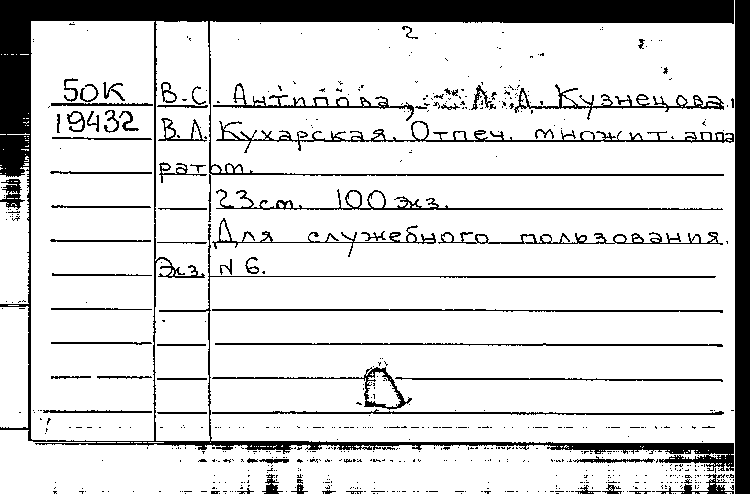 2
50К В.С. Антипова, Л.Д. Кузнецова
19432 В.Л. Кухарская. Отпеч. множит. аппа
ратом.
23 см. 100 экз.
Для служебного пользования.
Экз. N 6.